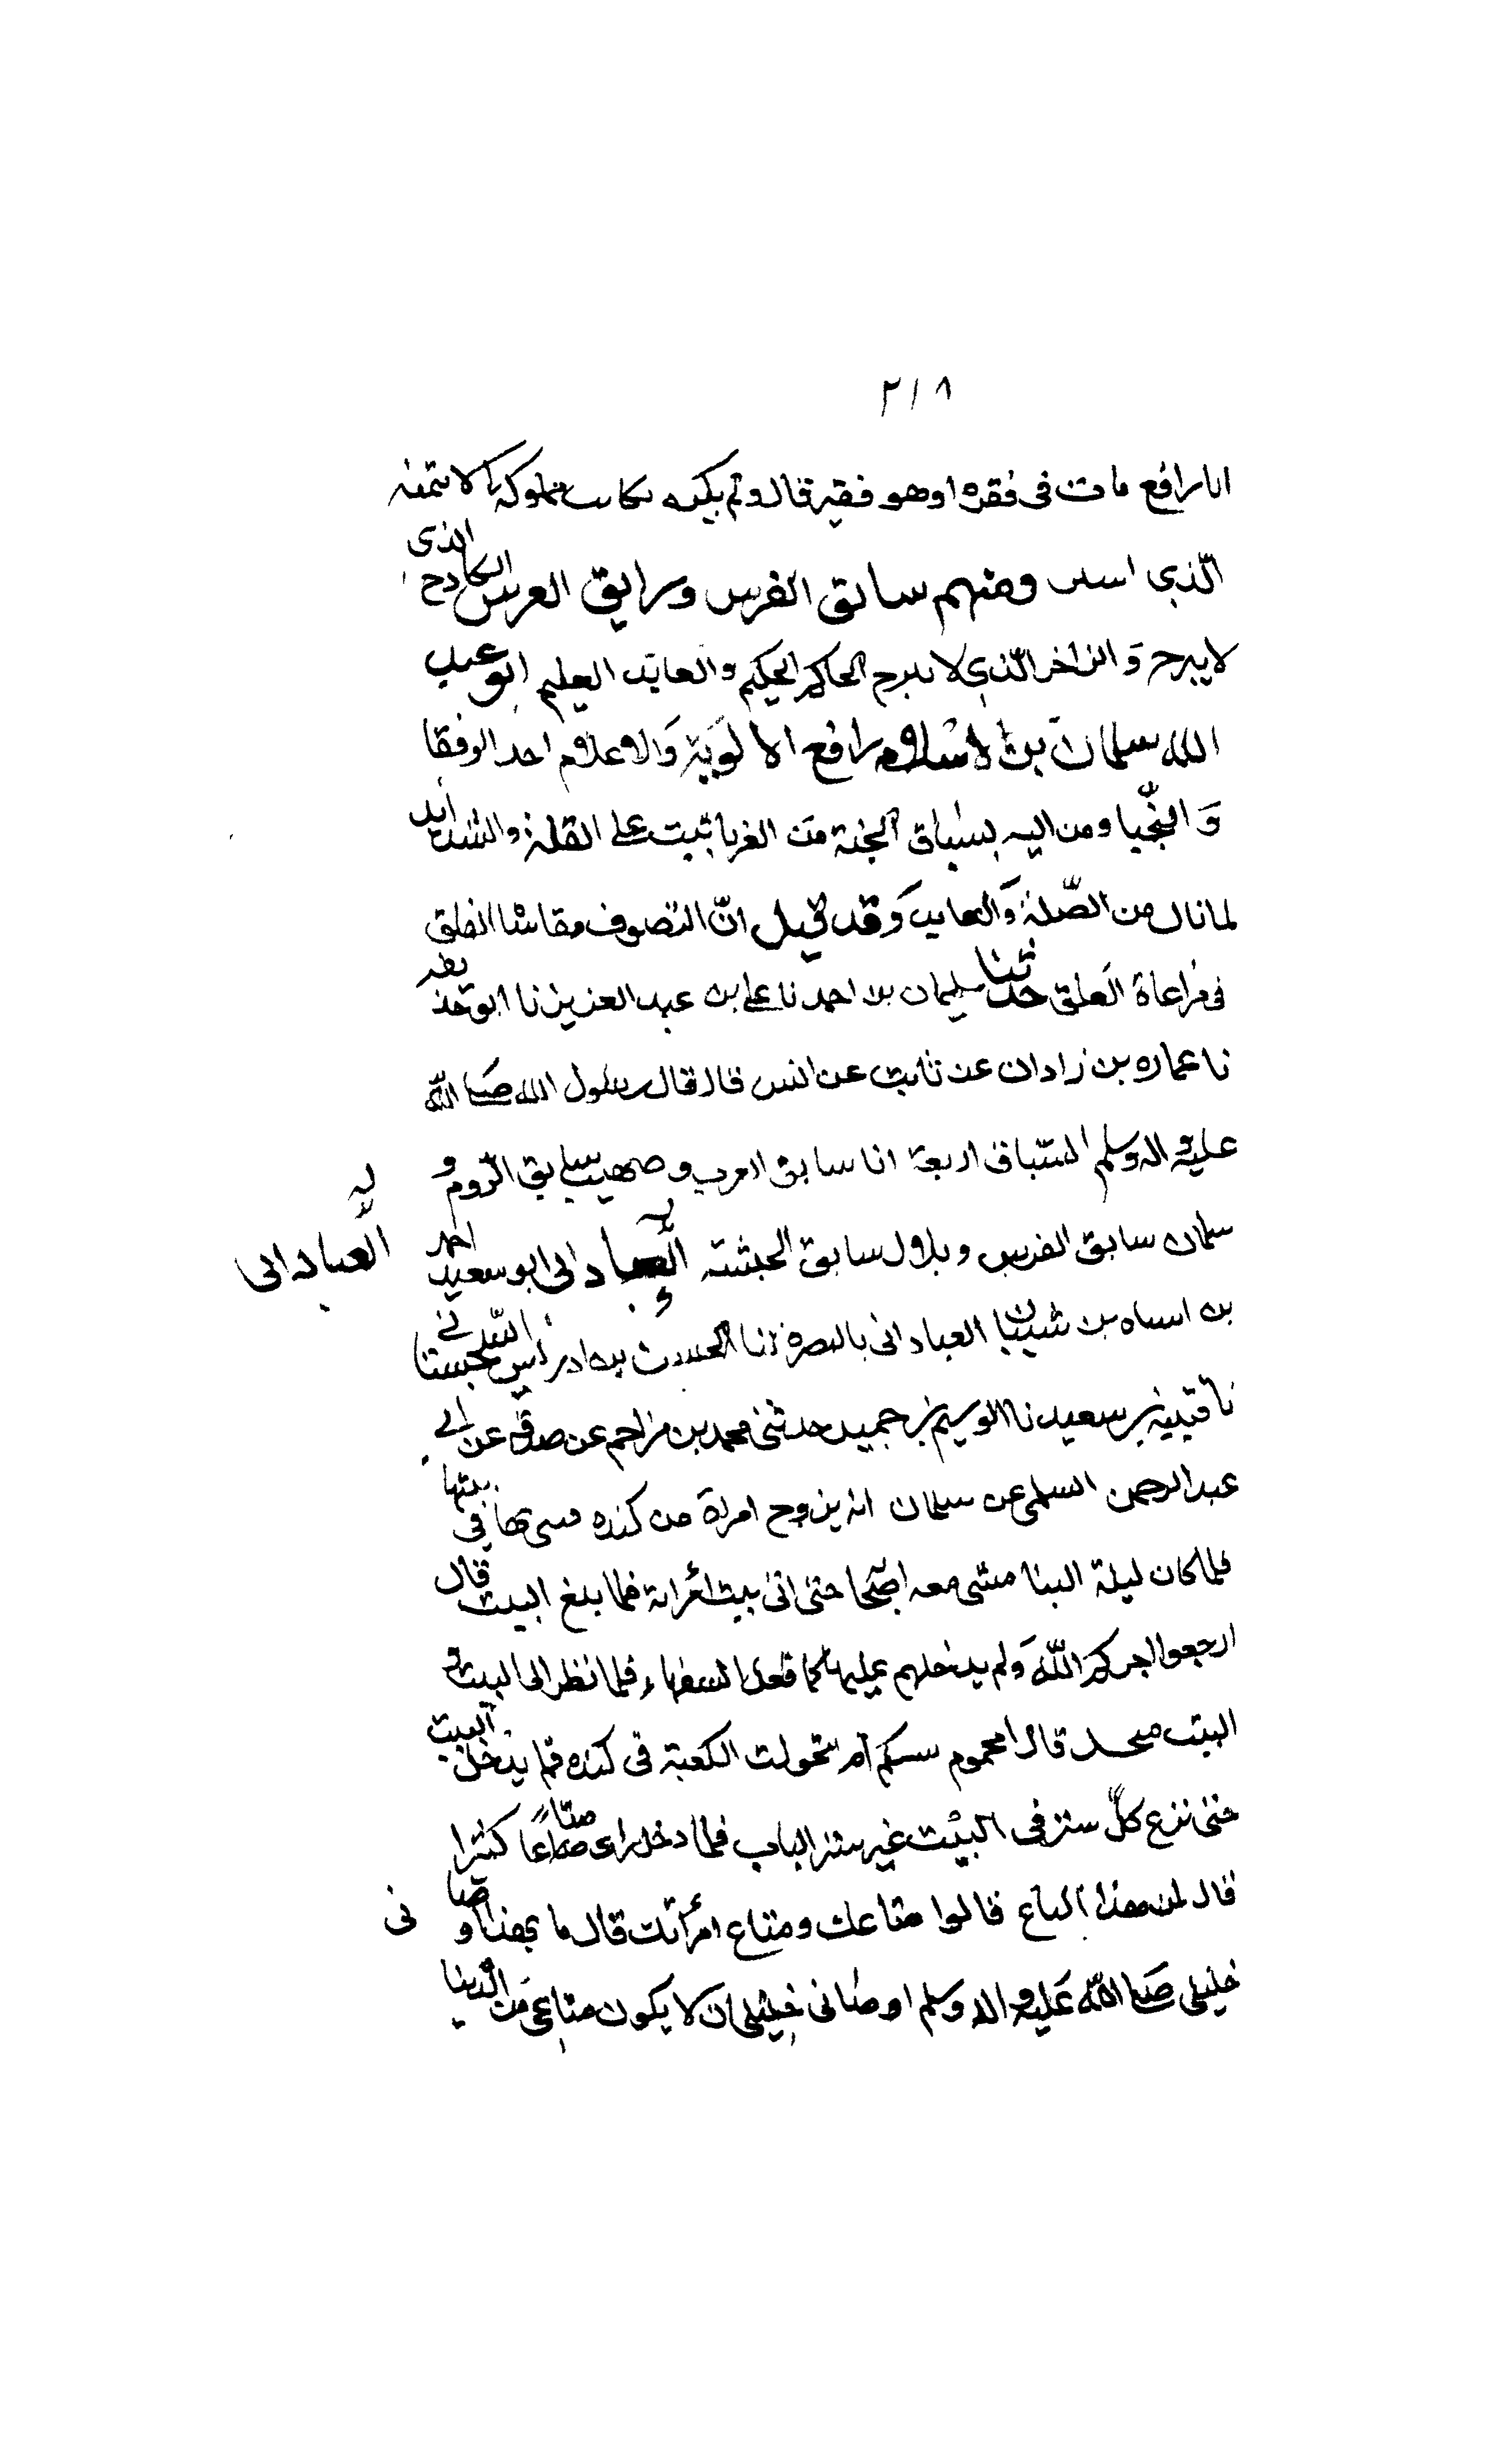 ٢١٨
ابا رافع مات فى فقره اوهو فقير قال ولم يكن يكاتب مملوكه الا بثمنه
الّذي اسلم ومنهم سابق الفرس ورايق العرس الكادح الذى
لا يبرح والزاخر الّذي لا يبرح الحاكم الحكيم والعابد العليم ابو عبد
الله سلمان بن الاسلام رافع الالوية والاعلام احد الرفقا
وَ النّجبا ومن اليه يشتاق الجنة من الغربا ثبت على القلة والشدايد
لما نال من الصّلة والعايد وَقد قيل انّ التصوف مقاساة القلق
فى مراعاة العلق حدثنا سليمان بن احمد نا على بن عبد العزيز نا ابو حذيفه
نا عماره بن زادان عن ثابت عن انس قال قال رسول الله صلى اللّه
عليه واله وسلم السّباق اربعة انا سابق العرب و صهيب سابق الرّوم و
سلمان سابق الفرس و بلال سابق الحبشة ابو سعيد احمد
العبادانى
بن اساه بن شيبان العبادانى بالبصره نا الحسن بن ادريس السّجستانى
نا قتيبة بن سعيد نا الوسيم بن جميد حدثنى محمد بن مزاحم عن صدقة عن ابى
عبد الرحمن السلمى عن سلمان انه تزوج امراة من كنده فبنى بها فى بيتها
فلما كان ليلة البنا مشى معه اصحابه حتى اتى بيت امراته فلما بلغ البيت قال
ارجعوا اجركم اللّه وَلم يدخلهم عليها كما فعل السفهاء فلما نظر الى البيت و
البيت منجد قال امحموم بيتكم ام تحولت الكعبة فى كنده فلم يدخل البيت
حتى نزع كلّ ستر فى البيت غير ستر الباب فلما دخل راى متاعًا كثيرا
قال لمن هذا المتاع قالوا متاعك ومتاع امرأتك قال ما بهذا اوصانى
خليلى صلى اللّه عليه واله وسلم اوصانى خليلى ان لا يكون متاعى من الدّنيا